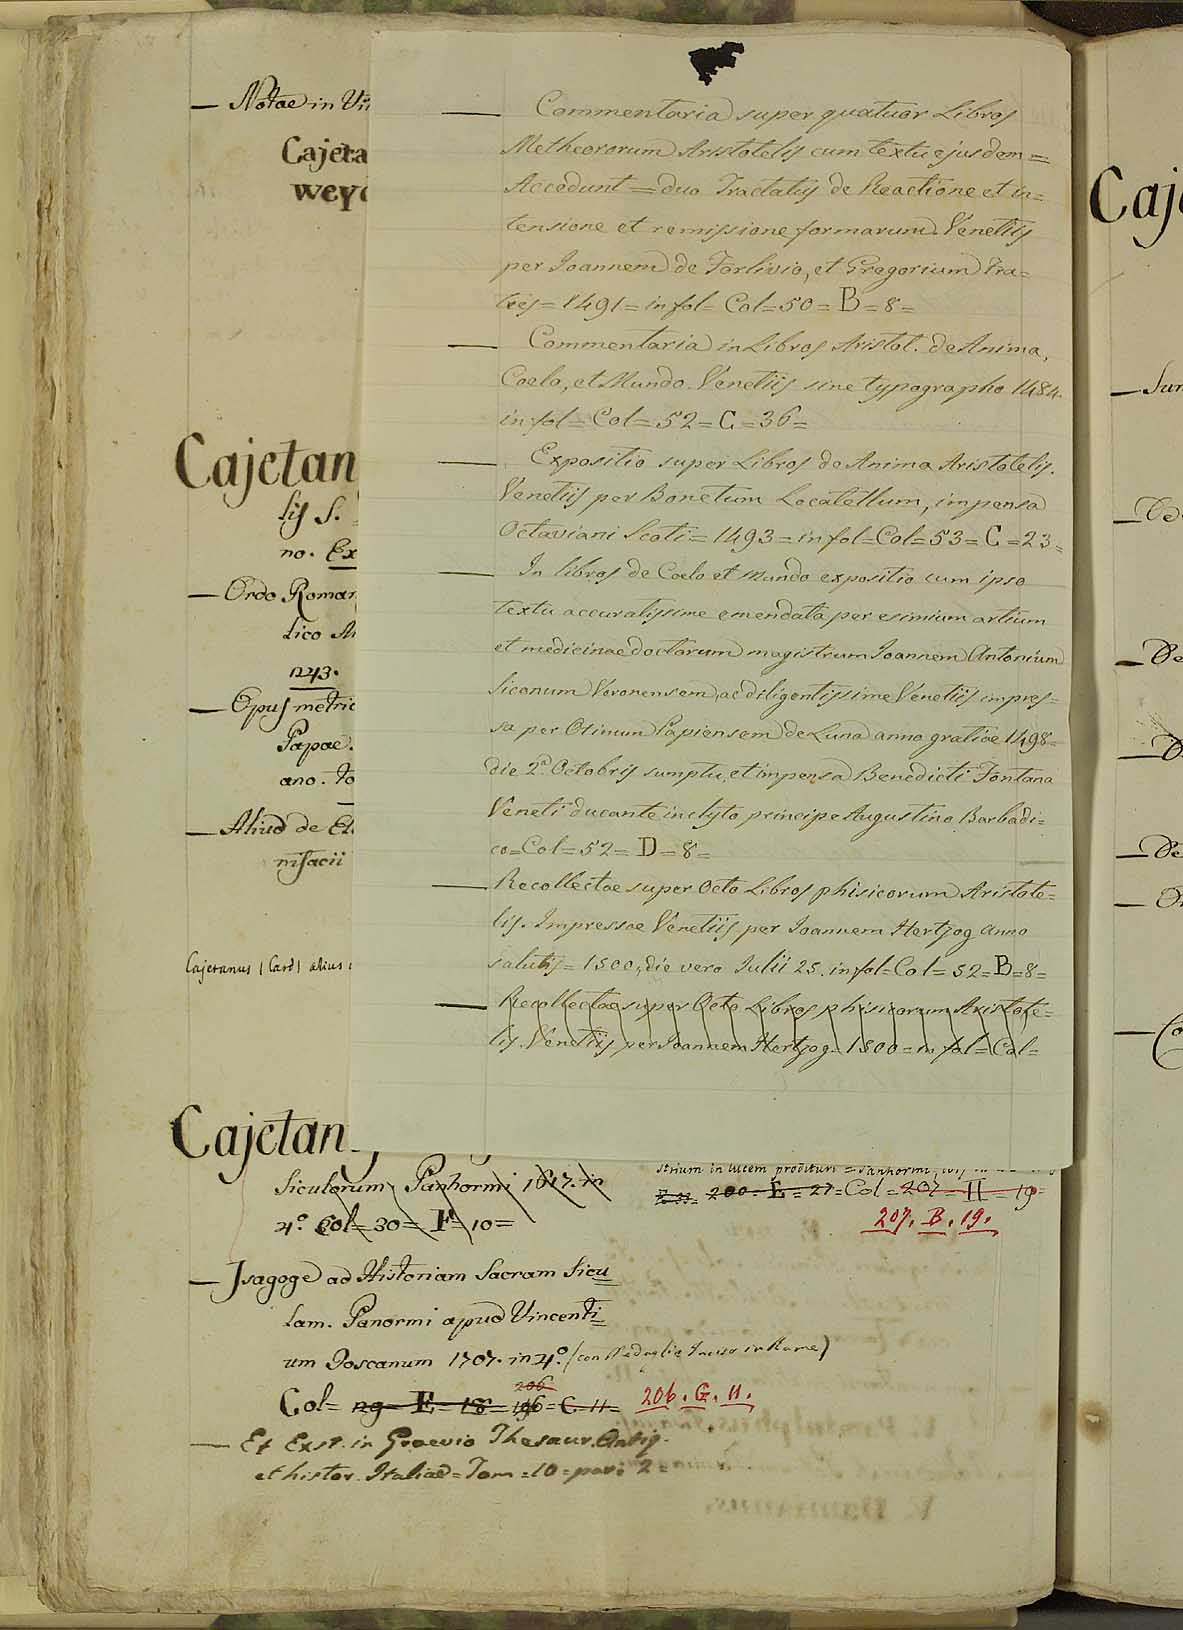 — Notae in Vi
Cajeta
wey
Cajetan
lis S.
no. Ex
— Ordo Roman
lico
1243.
— Opus metric
Papae.
ano. to
— Aliud de El
nifacii
Cajetanus (Card) alius
Cajetan
— Commentaria super quatuor Libros
Metheororum Aristotelis cum textu ejusdem =
Accedunt = duo Tractatus de Reactione et in=
tensione et remissione formarum. Venetiis
per Joannem de Forlivio, et Gregorium Fra=
tres = 1491 = in fol = Col = 50 = B = 8 =
— Commentaria in Libros Aristot. de Anima,
Coelo, et Mundo. Venetiis sine typographo 1484.
in fol = Col = 52 = C = 36 =
— Expositio super Libros de Anima Aristotelis.
Venetiis per Bonetum Locatellum, impensa
Octaviani Scoti = 1493 = in fol = Col = 53 = C = 23 =
— In libros de Coelo et Mundo expositio cum ipso
textu accuratissime emendata per esimium artium
et medicinae doctorum magistrum Joannem Antonium
Siconum Veronensem, ac diligentissime Venetiis impres=
sa per Otinum Papiensem de Luna anno gratiae 1498 =
die 2ª Octobris sumptu, et impensa Benedicti Fontana
Veneti ducante inclyto principe Augustino Barbadi=
co = Col = 52 = D = 8 =
— Recollectae super Octo Libros phisicorum Aristote=
lis. Impressae Venetiis per Joannem Hertzog anno
salutis = 1500, die vero Julii 25. in fol = Col = 52 = B = 8 =
— Recollectae super Octo Libros phisicorum Aristote=
lis. Venetiis per Joannem Hertzog = 1500 = in fol = Col =
Siculorum Panhormi 1617. in
4º Col = 30 = F = 10 =
strium in lucem prodituri = Panhormi,
200 = E = 27 = Col = 207 = H = 19 =
207. B. 19.
— Isagoge ad Historiam Sacram Sicu
lam. Panormi apud Vincenti
um Toscanum 1707. in 4º (con Medaglie Incise in Rame)
206
Col = 29 = E = 18 = 196 = C = 11 = 206. G. 11.
— Et Exst. in Graevio Thesaur. Antiq.
et histor. Italiae = Tom = 10 = par: 2 =
Caj
— Sur
— De
— De
— D
— De
— O
— Co